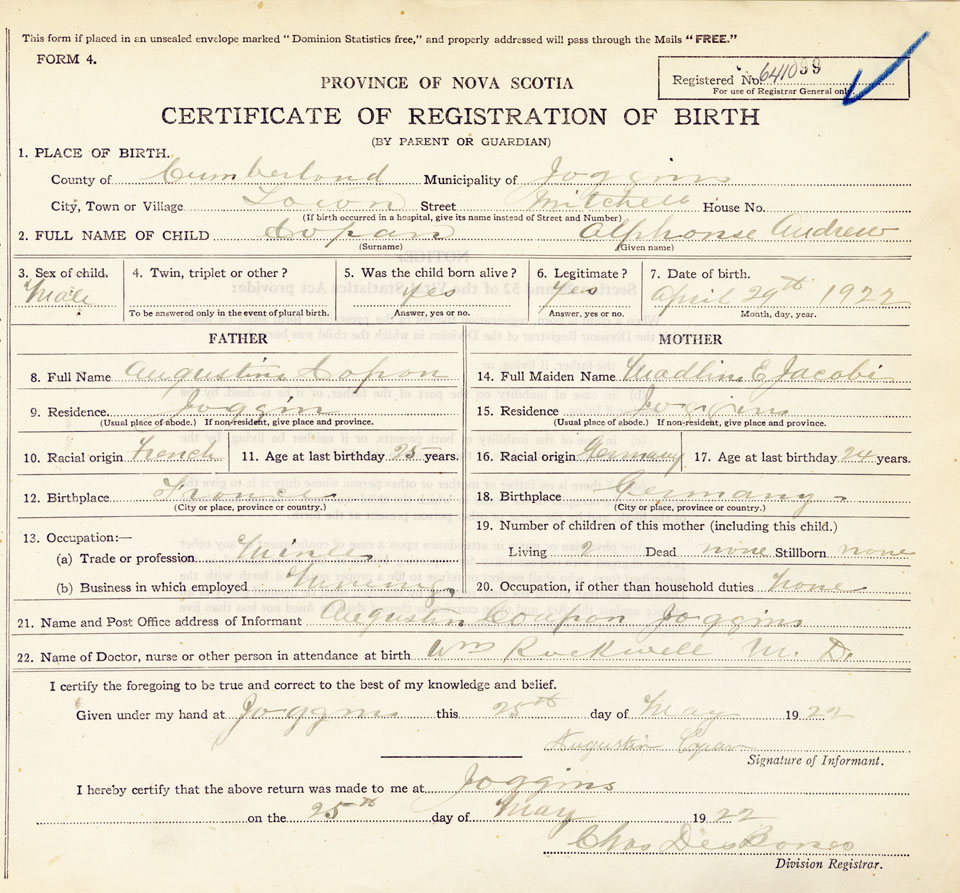 This form if placed in an unsealed envelope marked "Dominion Statistics free," and properly addressed will pass through the Mails "FREE."
FORM 4.
Registered No. 641099
For use of Registrar General only.
PROVINCE OF NOVA SCOTIA
CERTIFICATE OF REGISTRATION OF BIRTH
(BY PARENT OR GUARDIAN)
1. PLACE OF BIRTH.
County of Cumberland Municipality of Joggins
City, Town or Village Town Street Mitchell House No.
(If birth occurred in a hospital, give its name instead of Street and Number)
2. FULL NAME OF CHILD Copan Alphonse Andrew
(Surname) (Given name)
3. Sex of child. 4. Twin, triplet or other? 5. Was the child born alive? 6. Legitimate? 7. Date of birth.
Male yes yes April 29th 1922
To be answered only in the event of plural birth. Answer, yes or no. Answer, yes or no. Month, day, year.
FATHER MOTHER
8. Full Name Augustin Copon 14. Full Maiden Name Madlin E Jacobi
9. Residence. Joggin 15. Residence Joggins
(Usual place of abode.) If non-resident, give place and province. (Usual place of abode.) If non-resident, give place and province.
10. Racial origin French 11. Age at last birthday 25 years. 16. Racial origin Germany 17. Age at last birthday 24 years.
12. Birthplace France 18. Birthplace Germany
(City or place, province or country.) (City or place, province or country.)
19. Number of children of this mother (including this child.)
13. Occupation:—
(a) Trade or profession Miner Living 2 Dead none Stillborn none
(b) Business in which employed Mining 20. Occupation, if other than household duties None
21. Name and Post Office address of Informant Augustin Coupon Joggins
22. Name of Doctor, nurse or other person in attendance at birth Wm Rockwell M. D.
I certify the foregoing to be true and correct to the best of my knowledge and belief.
Given under my hand at Joggins this 25th day of May 1922
Augustin Copan
Signature of Informant.
I hereby certify that the above return was made to me at Joggins
on the 25th day of May 1922
Chas DesBones
Division Registrar.